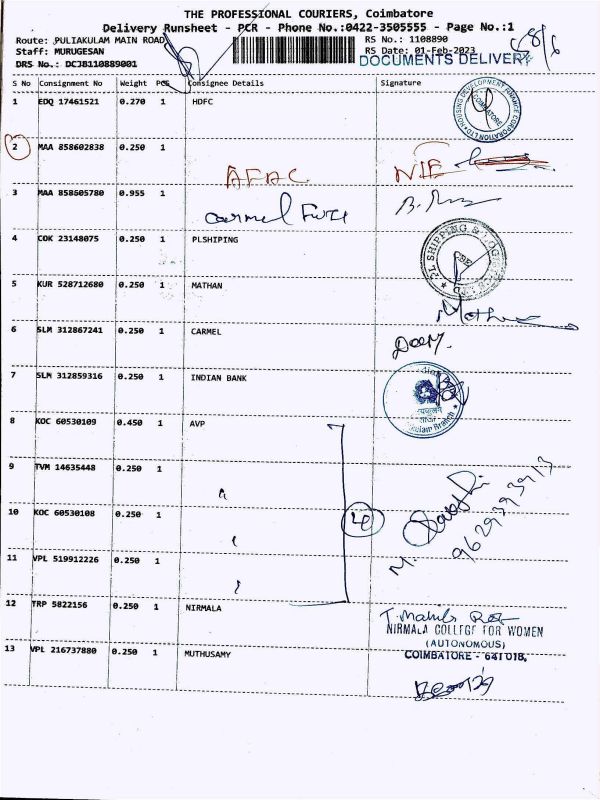 THE PROFESSIONAL COURIERS, Coimbatore
Delivery Runsheet - PCR - Phone No.:0422-3505555 - Page No.:1
Route: PULIAKULAM MAIN ROAD RS No.: 1108890
Staff: MURUGESAN RS Date: 01-Feb-2023
DRS No.: DCJB110889001 DOCUMENTS DELIVERY
S No Consignment No Weight PCS Consignee Details Signature
1 EDQ 17461521 0.270 1 HDFC
HOUSING DEVELOPMENT FINANCE CORPORATION LTD COIMBATORE
2 MAA 858602838 0.250 1
AFAC
3 MAA 858605780 0.955 1
Carmel
4 COK 23148075 0.250 1 PLSHIPING
PL SHIPPING & LOGISTICS LTD CBE
5 KUR 528712680 0.250 1 MATHAN
6 SLM 312867241 0.250 1 CARMEL
7 SLM 312859316 0.250 1 INDIAN BANK
Branch
8 KOC 60530109 0.450 1 AVP
9 TVM 14635448 0.250 1
10 KOC 60530108 0.250 1
11 VPL 519912226 0.250 1
M.
9629393913
12 TRP 5822156 0.250 1 NIRMALA
NIRMALA COLLEGE FOR WOMEN
(AUTONOMOUS)
COIMBATORE - 641 018.
13 VPL 216737880 0.250 1 MUTHUSAMY